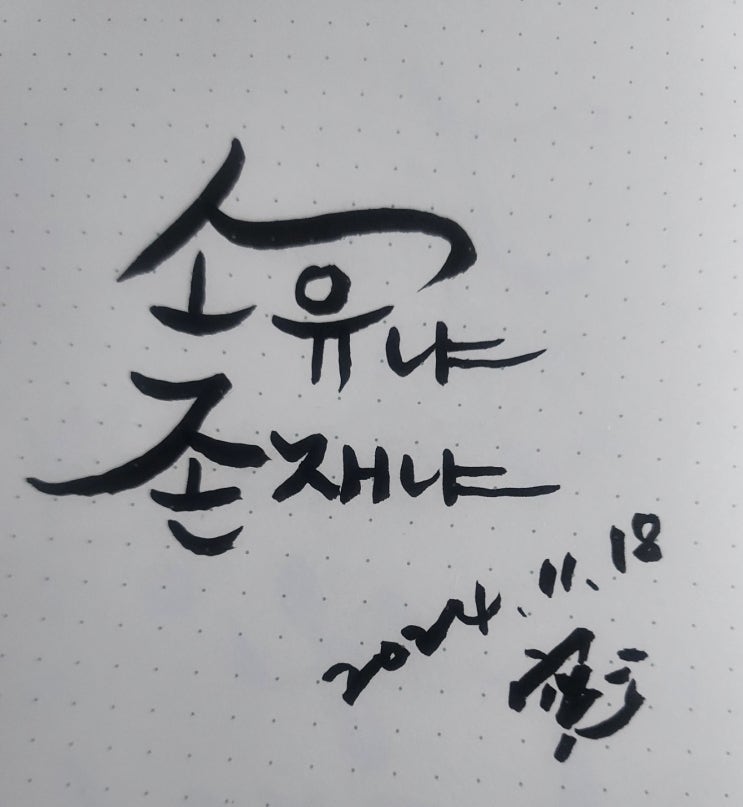 소유냐
존재냐
2024.11.18